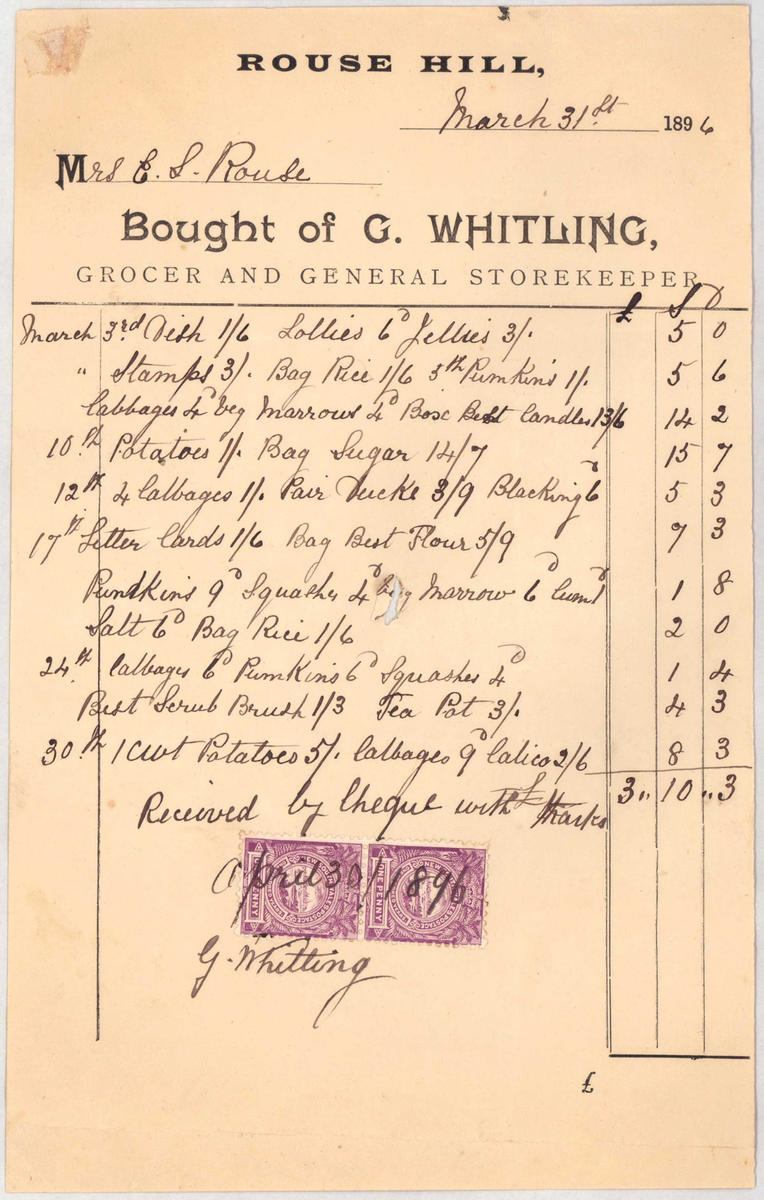 ROUSE HILL,
March 31st 1896
Mrs E. S. Rouse
Bought of G. WHITLING,
GROCER AND GENERAL STOREKEEPER
£ S D
March 3rd Dish 1/6 Lollies 6d Jellies 3/. 5 0
" Stamps 3/. Bag Rice 1/6 5th Pumkins 1/. 5 6
Cabbages 4d Veg Marrows 4d Box Best Candles 13/6 14 2
10th Potatoes 1/. Bag Sugar 14/7 15 7
12th 4 Cabbages 1/. Pair Ducks 3/9 Blacking 6d 5 3
17th Letter Cards 1/6 Bag Best Flour 5/9 7 3
Pumkins 9d Squashes 4d Veg Marrow 6d 1 8
Salt 6d Bag Rice 1/6 2 0
24th Cabbages 6d Pumkins 6d Squashes 4d 1 4
Best Scrub Brush 1/3 Tea Pot 3/. 4 3
30th 1 cwt Potatoes 5/. Cabbages 9d Calico 2/6 8 3
£ 3 " 10 " 3
Received by Cheque with thanks
April 30/1896
ONE PENNY
ONE PENNY
G. Whitling
£